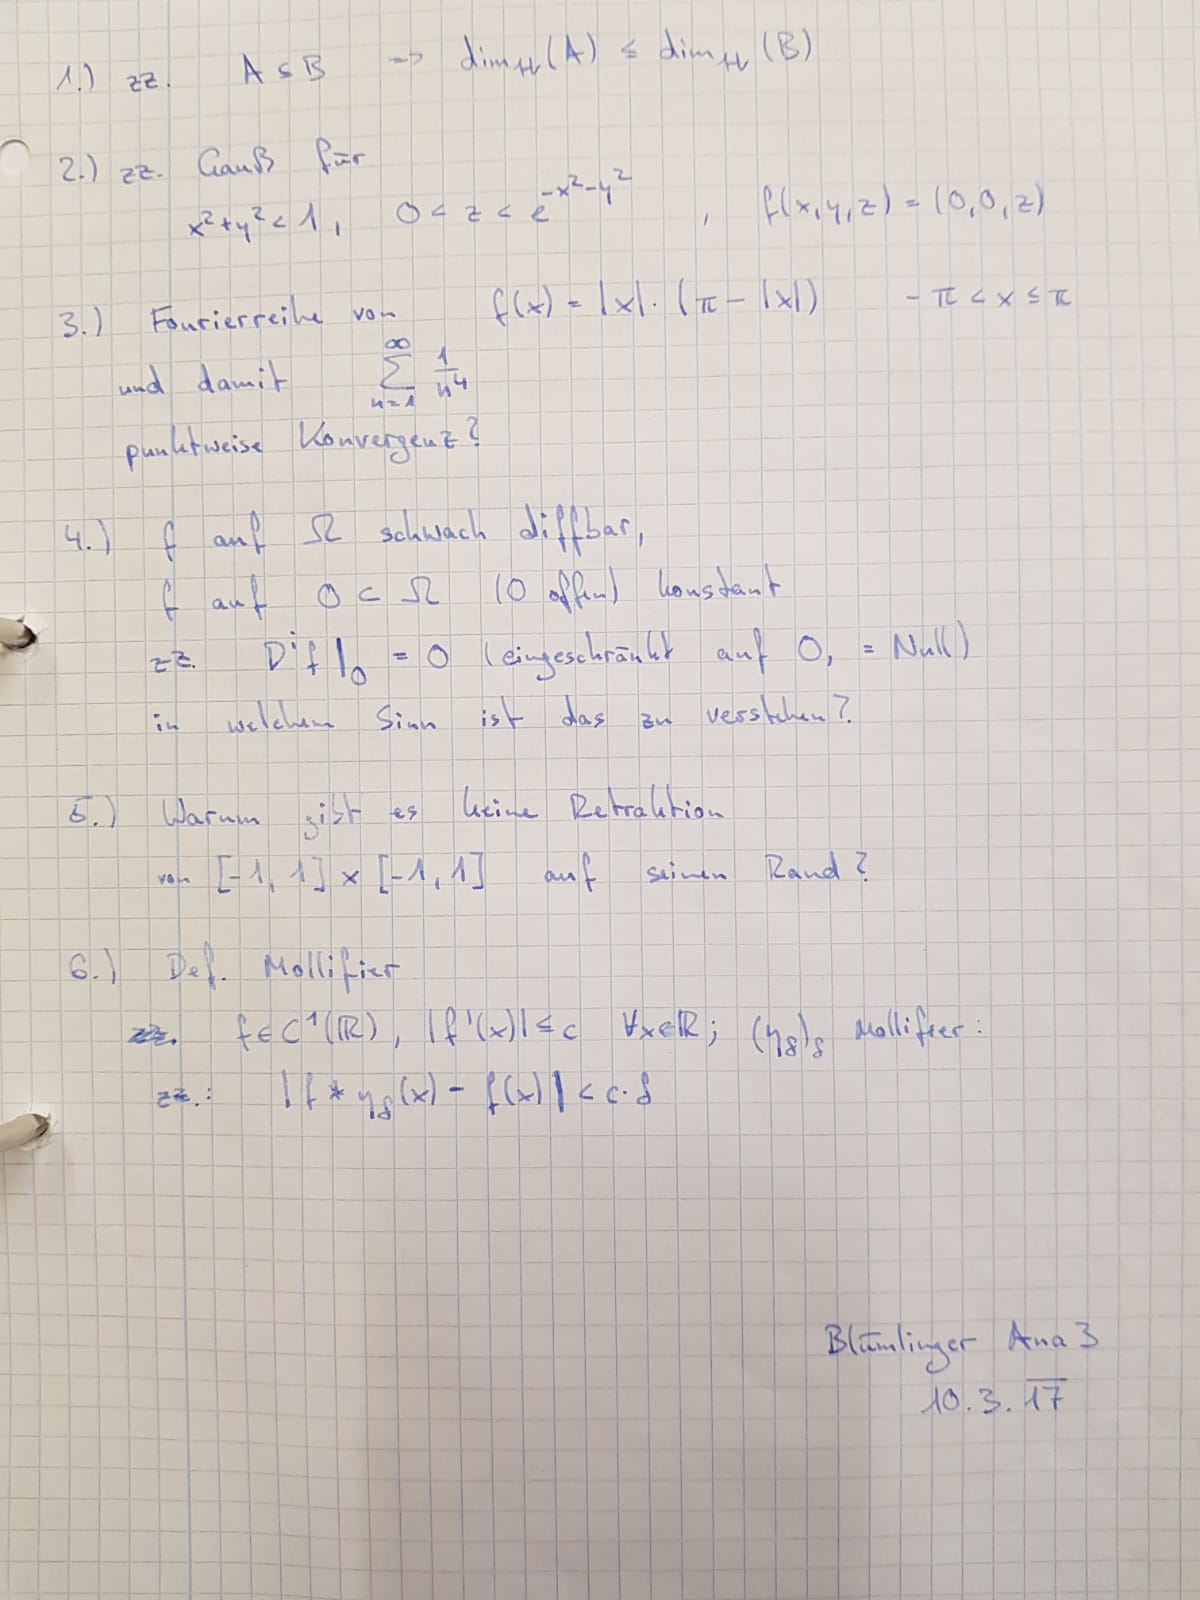 1.) zz. A ⊆ B => dim_H(A) ≤ dim_H(B)
2.) zz. Gauß für
x²+y² < 1, 0 < z < e^{-x²-y²}, f(x,y,z) = (0,0,z)
3.) Fourierreihe von f(x) = |x|·(π-|x|) -π < x ≤ π
und damit ∑_{n=1}^{∞} 1/n⁴
punktweise Konvergenz?
4.) f auf Ω schwach diffbar,
f auf O ⊂ Ω (O offen) konstant
zz. Dⁱf|_O = 0 (eingeschränkt auf O, = Null)
in welchem Sinn ist das zu verstehen?
5.) Warum gibt es keine Retraktion
von [-1,1] × [-1,1] auf seinen Rand?
6.) Def. Mollifier
zz. f ∈ C¹(ℝ), |f'(x)| ≤ c ∀x∈ℝ; (η_δ)_δ Mollifier:
zz.: |f * η_δ(x) - f(x)| < c·δ
Blümlinger Ana 3
10.3.17